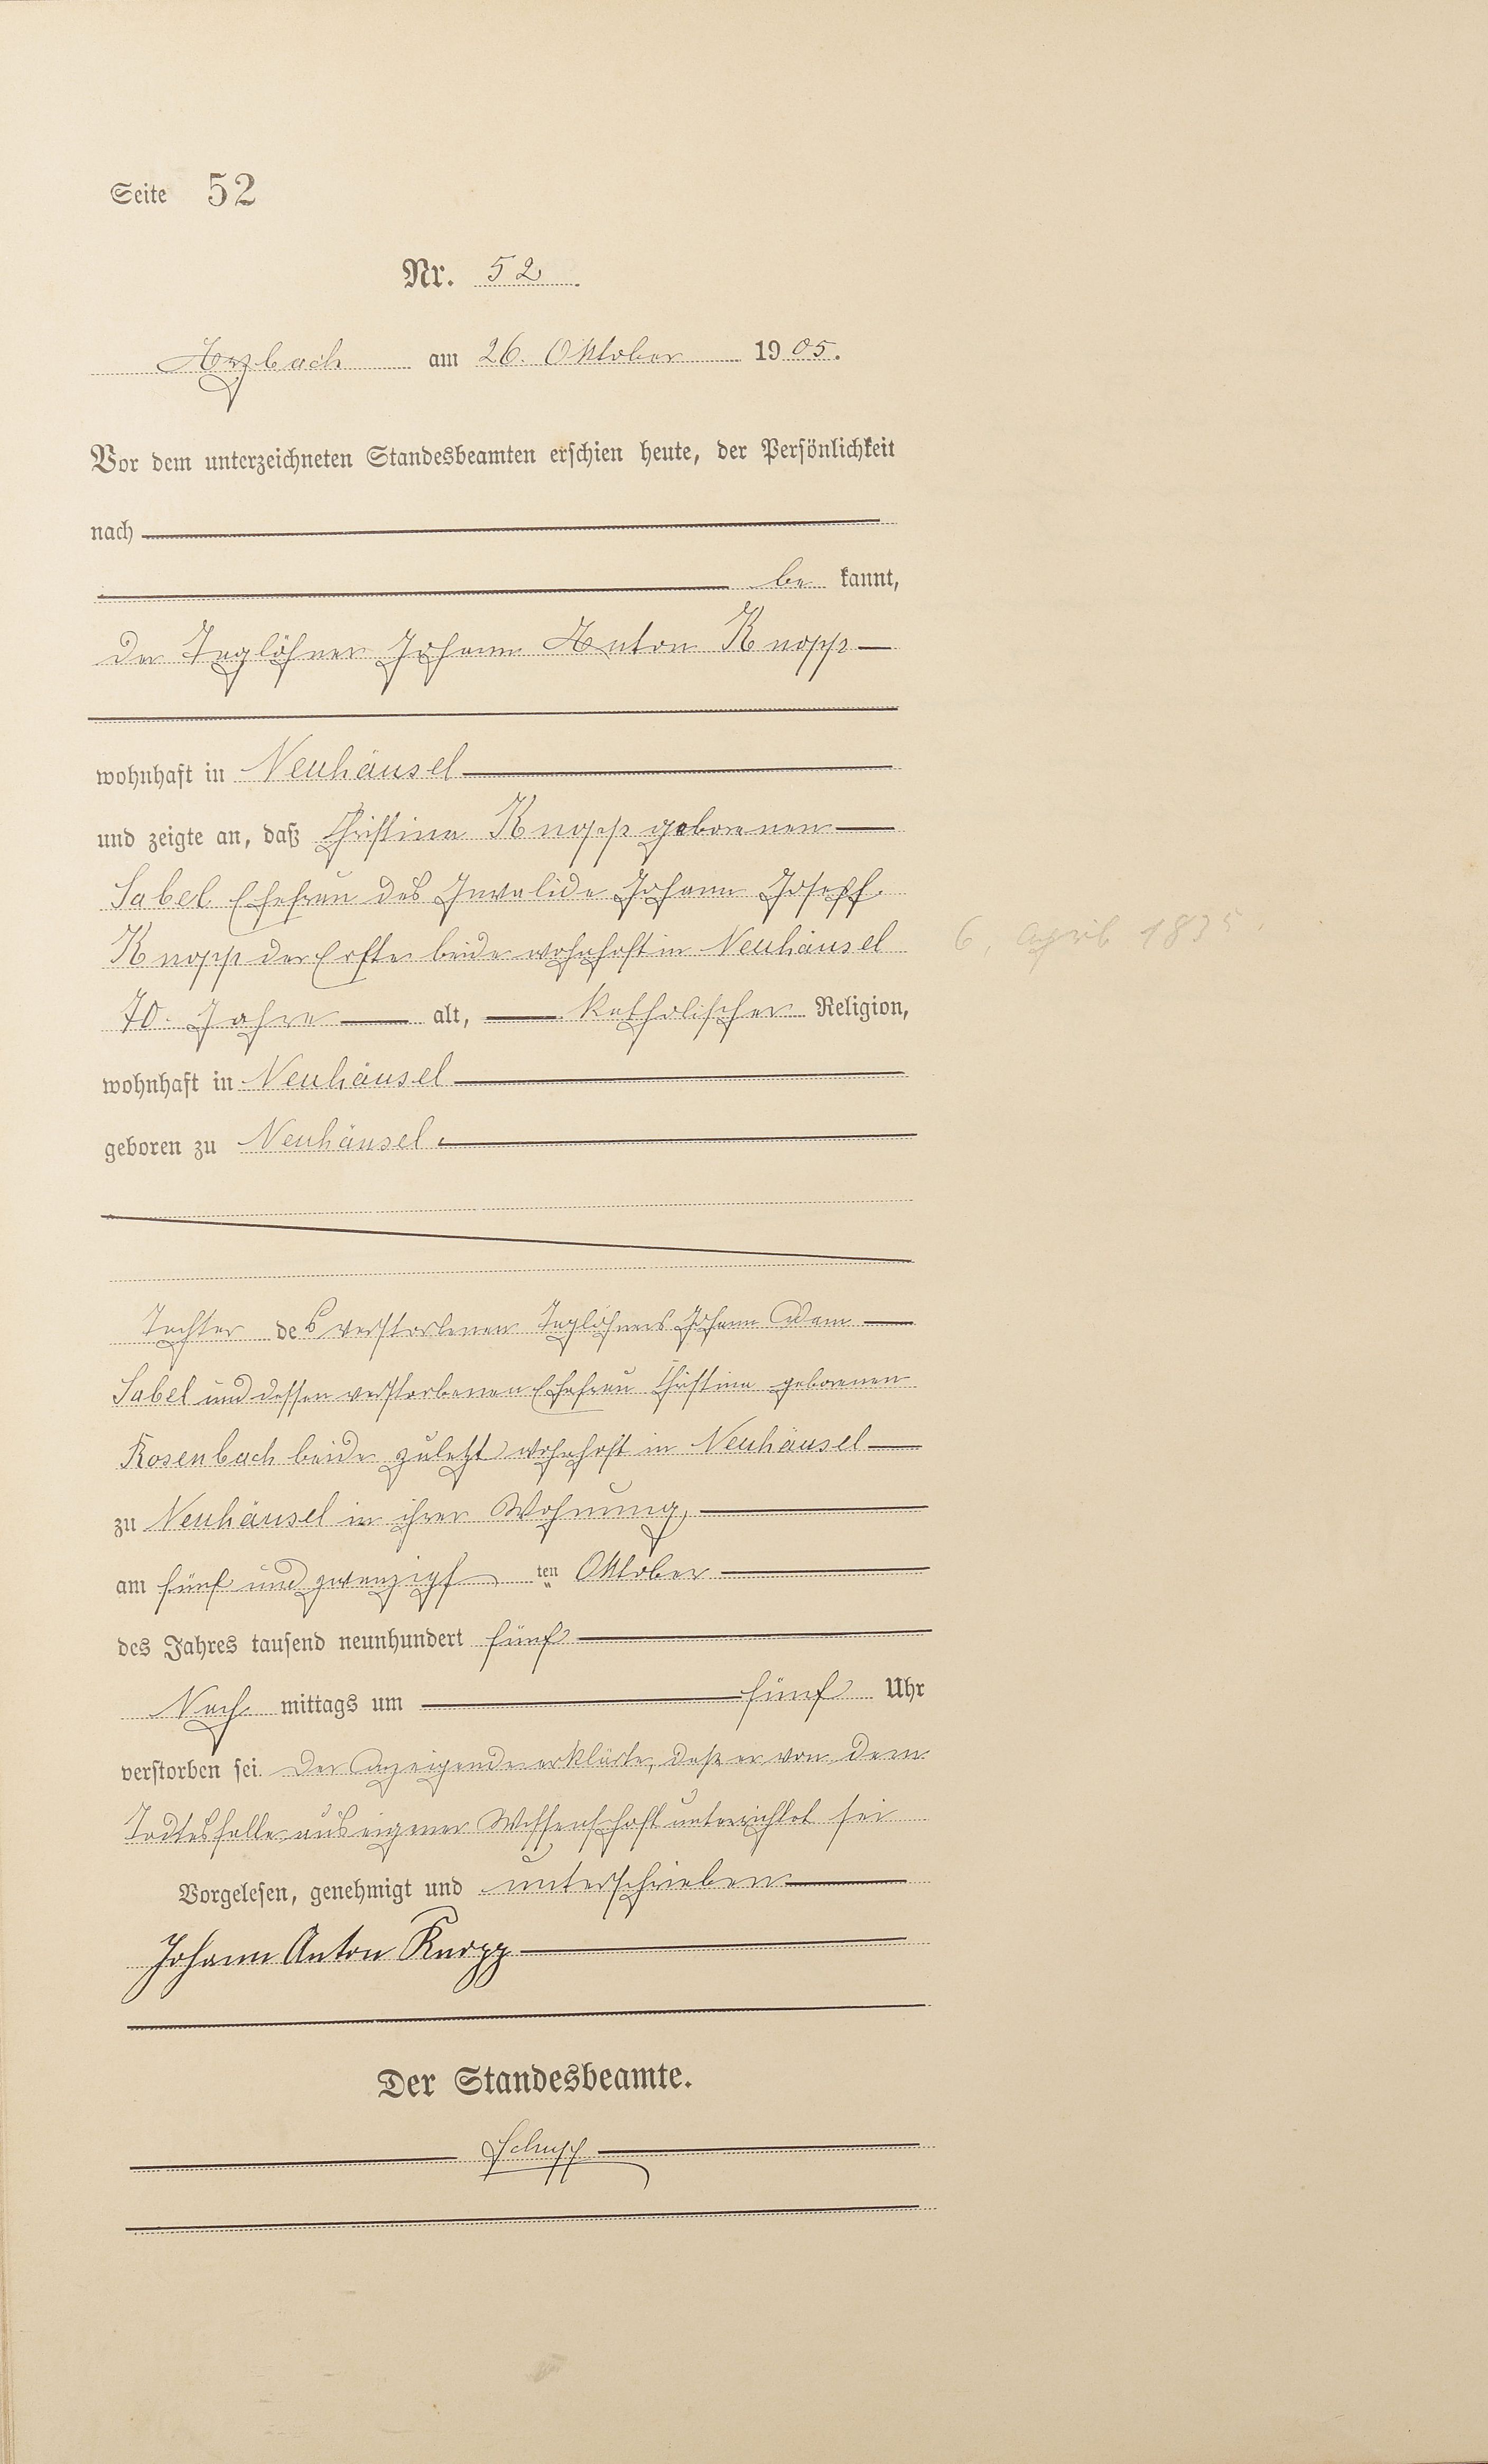 Seite 52
Nr. 52.
Arzbach am 26. Oktober 1905.
Vor dem unterzeichneten Standesbeamten erschien heute, der Persönlichkeit
nach
be kannt,
der Taglöhner Johann Anton Knopp
wohnhaft in Neuhäusel
und zeigte an, daß Christina Knopp geborenen
Sabel Ehefrau des Invalide Johann Joseph
Knopp der Erste beide wohnhaft in Neuhäusel
6. April 1835.
70. Jahre alt, katholischer Religion,
wohnhaft in Neuhäusel
geboren zu Neuhäusel.
Tochter des verstorbenen Taglöhners Johann Adam
Sabel und dessen verstorbenen Ehefrau Christina geborenen
Rosenbach beide zuletzt wohnhaft in Neuhäusel
zu Neuhäusel in ihrer Wohnung,
am fünf und zwanzigs ten Oktober
des Jahres tausend neunhundert fünf
Nach mittags um fünf Uhr
verstorben sei. Der Anzeigende erklärte, daß er von dem
Todtesfalle aus eigener Wissenschaft unterrichtet sei
Vorgelesen, genehmigt und unterschrieben
Johann Anton Knopp
Der Standesbeamte.
Schupp